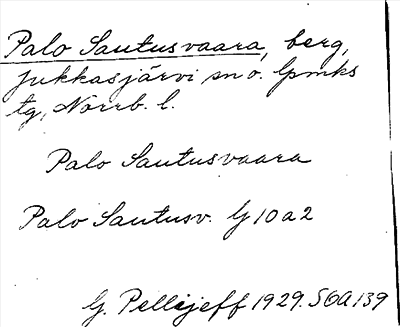 Palo Sautusvaara, berg,
Jukkasjärvi sn o. lpmks
tg, Norrb. l.
Palo Sautusvaara
Palo Sautusv. Gj 10 a 2
G. Pellijeff 1929. SOA 139